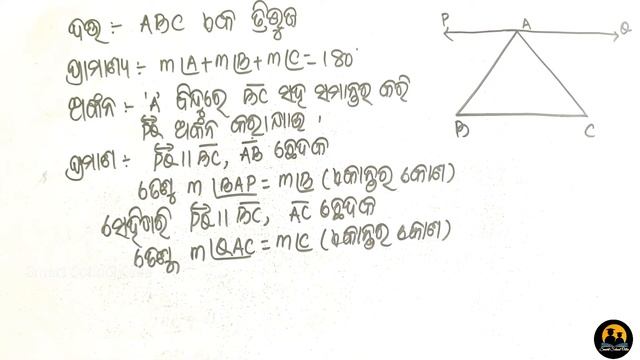 ଦତ୍ତ :- ABC ଏକ ତ୍ରିଭୁଜ
ପ୍ରାମାଣ୍ୟ :- m∠A+m∠B+m∠C=180°
ଅଙ୍କନ :- 'A' ବିନ୍ଦୁରେ BC ସହ ସମାନ୍ତର କରି
PQ ଅଙ୍କନ କରାଯାଉ ।
ପ୍ରମାଣ :- PQ || BC, AB ଛେଦକ
ତେଣୁ m∠BAP = m∠B (ଏକାନ୍ତର କୋଣ)
ସେହିପରି PQ || BC, AC ଛେଦକ
ତେଣୁ m∠QAC = m∠C (ଏକାନ୍ତର କୋଣ)
P A Q
B C